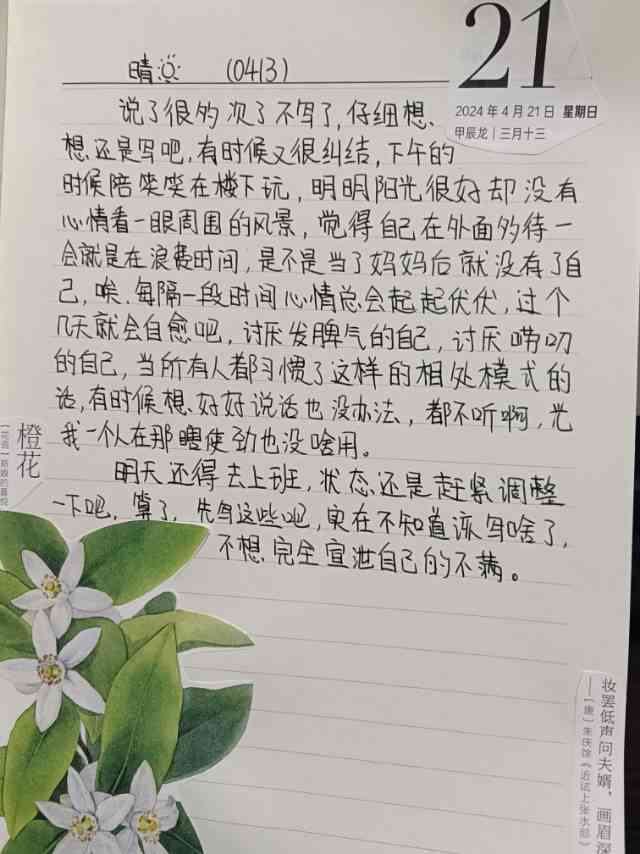 21
2024年4月21日 星期日
甲辰龙｜三月十三
晴 (0413)
说了很多次了不写了，仔细想、
想还是写吧，有时候又很纠结，下午的
时候陪笑笑在楼下玩，明明阳光很好却没有
心情看一眼周围的风景，觉得自己在外面多待一
会就是在浪费时间，是不是当了妈妈后就没有了自
己，唉、每隔一段时间心情总会起起伏伏，过个
几天就会自愈吧，讨厌发脾气的自己，讨厌唠叨
的自己，当所有人都习惯了这样的相处模式的
话，有时候想好好说话也没办法，都不听啊，光
我一个人在那瞎使劲也没啥用。
明天还得去上班，状态还是赶紧调整
一下吧，算了，先写这些吧，实在不知道该写啥了，
不想完全宣泄自己的不满。
橙花
【花语】新娘的喜悦
妆罢低声问夫婿，画眉深
——［唐］朱庆馀《近试上张水部》